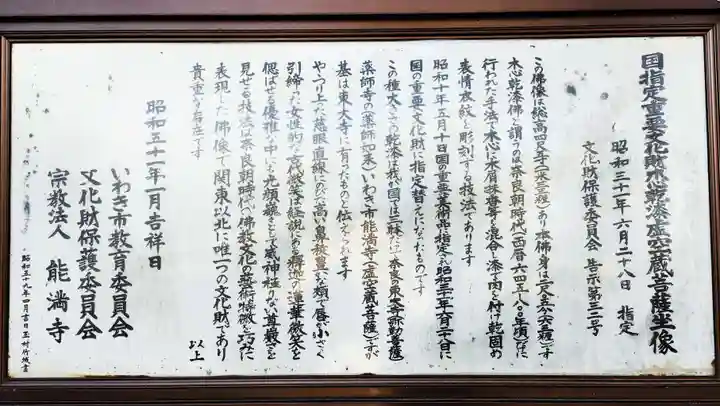 国指定重要文化財木心乾漆虚空蔵菩薩坐像
昭和三十一年六月二十八日 指定
文化財保護委員会 告示第三二号
この佛像は総高四尺 あり本佛身は です
木心乾漆佛と謂うのは奈良朝時代(西暦六四五 年頃)に
行われた手法で木心に木屑抹香等を混合し漆で肉を付け乾固め
表情衣紋を彫刻する技法であります
昭和十年五月十日国の重要美術品指定され昭和三十一年六月二十八日に
国の重要文化財に指定替えになったものです
この種大きさの乾漆は我が国では三躰だけで奈良の東大寺(弥勒菩薩)
薬師寺の(薬師如来)いわき市能満寺の(虚空蔵菩薩)ですが
基は東大寺に有ったものと伝えられます
やゝつり上った慈眼直線にのびた高い鼻 た頬で唇が小さく
引締った女性的な古代微笑は経説にある釈迦の蓮華微笑を
偲ばせる優雅の中にも光顔巍々として威神極りない尊厳さを
見せる技法は奈良朝時代の佛教文化の藝術特徴を巧みに
表現した佛像で関東以北に唯一つの文化財であり
貴重な存在です
以上
昭和五十一年一月吉祥日
いわき市教育委員会
文化財保護委員会
宗教法人 能満寺
昭和五十九年四月吉日